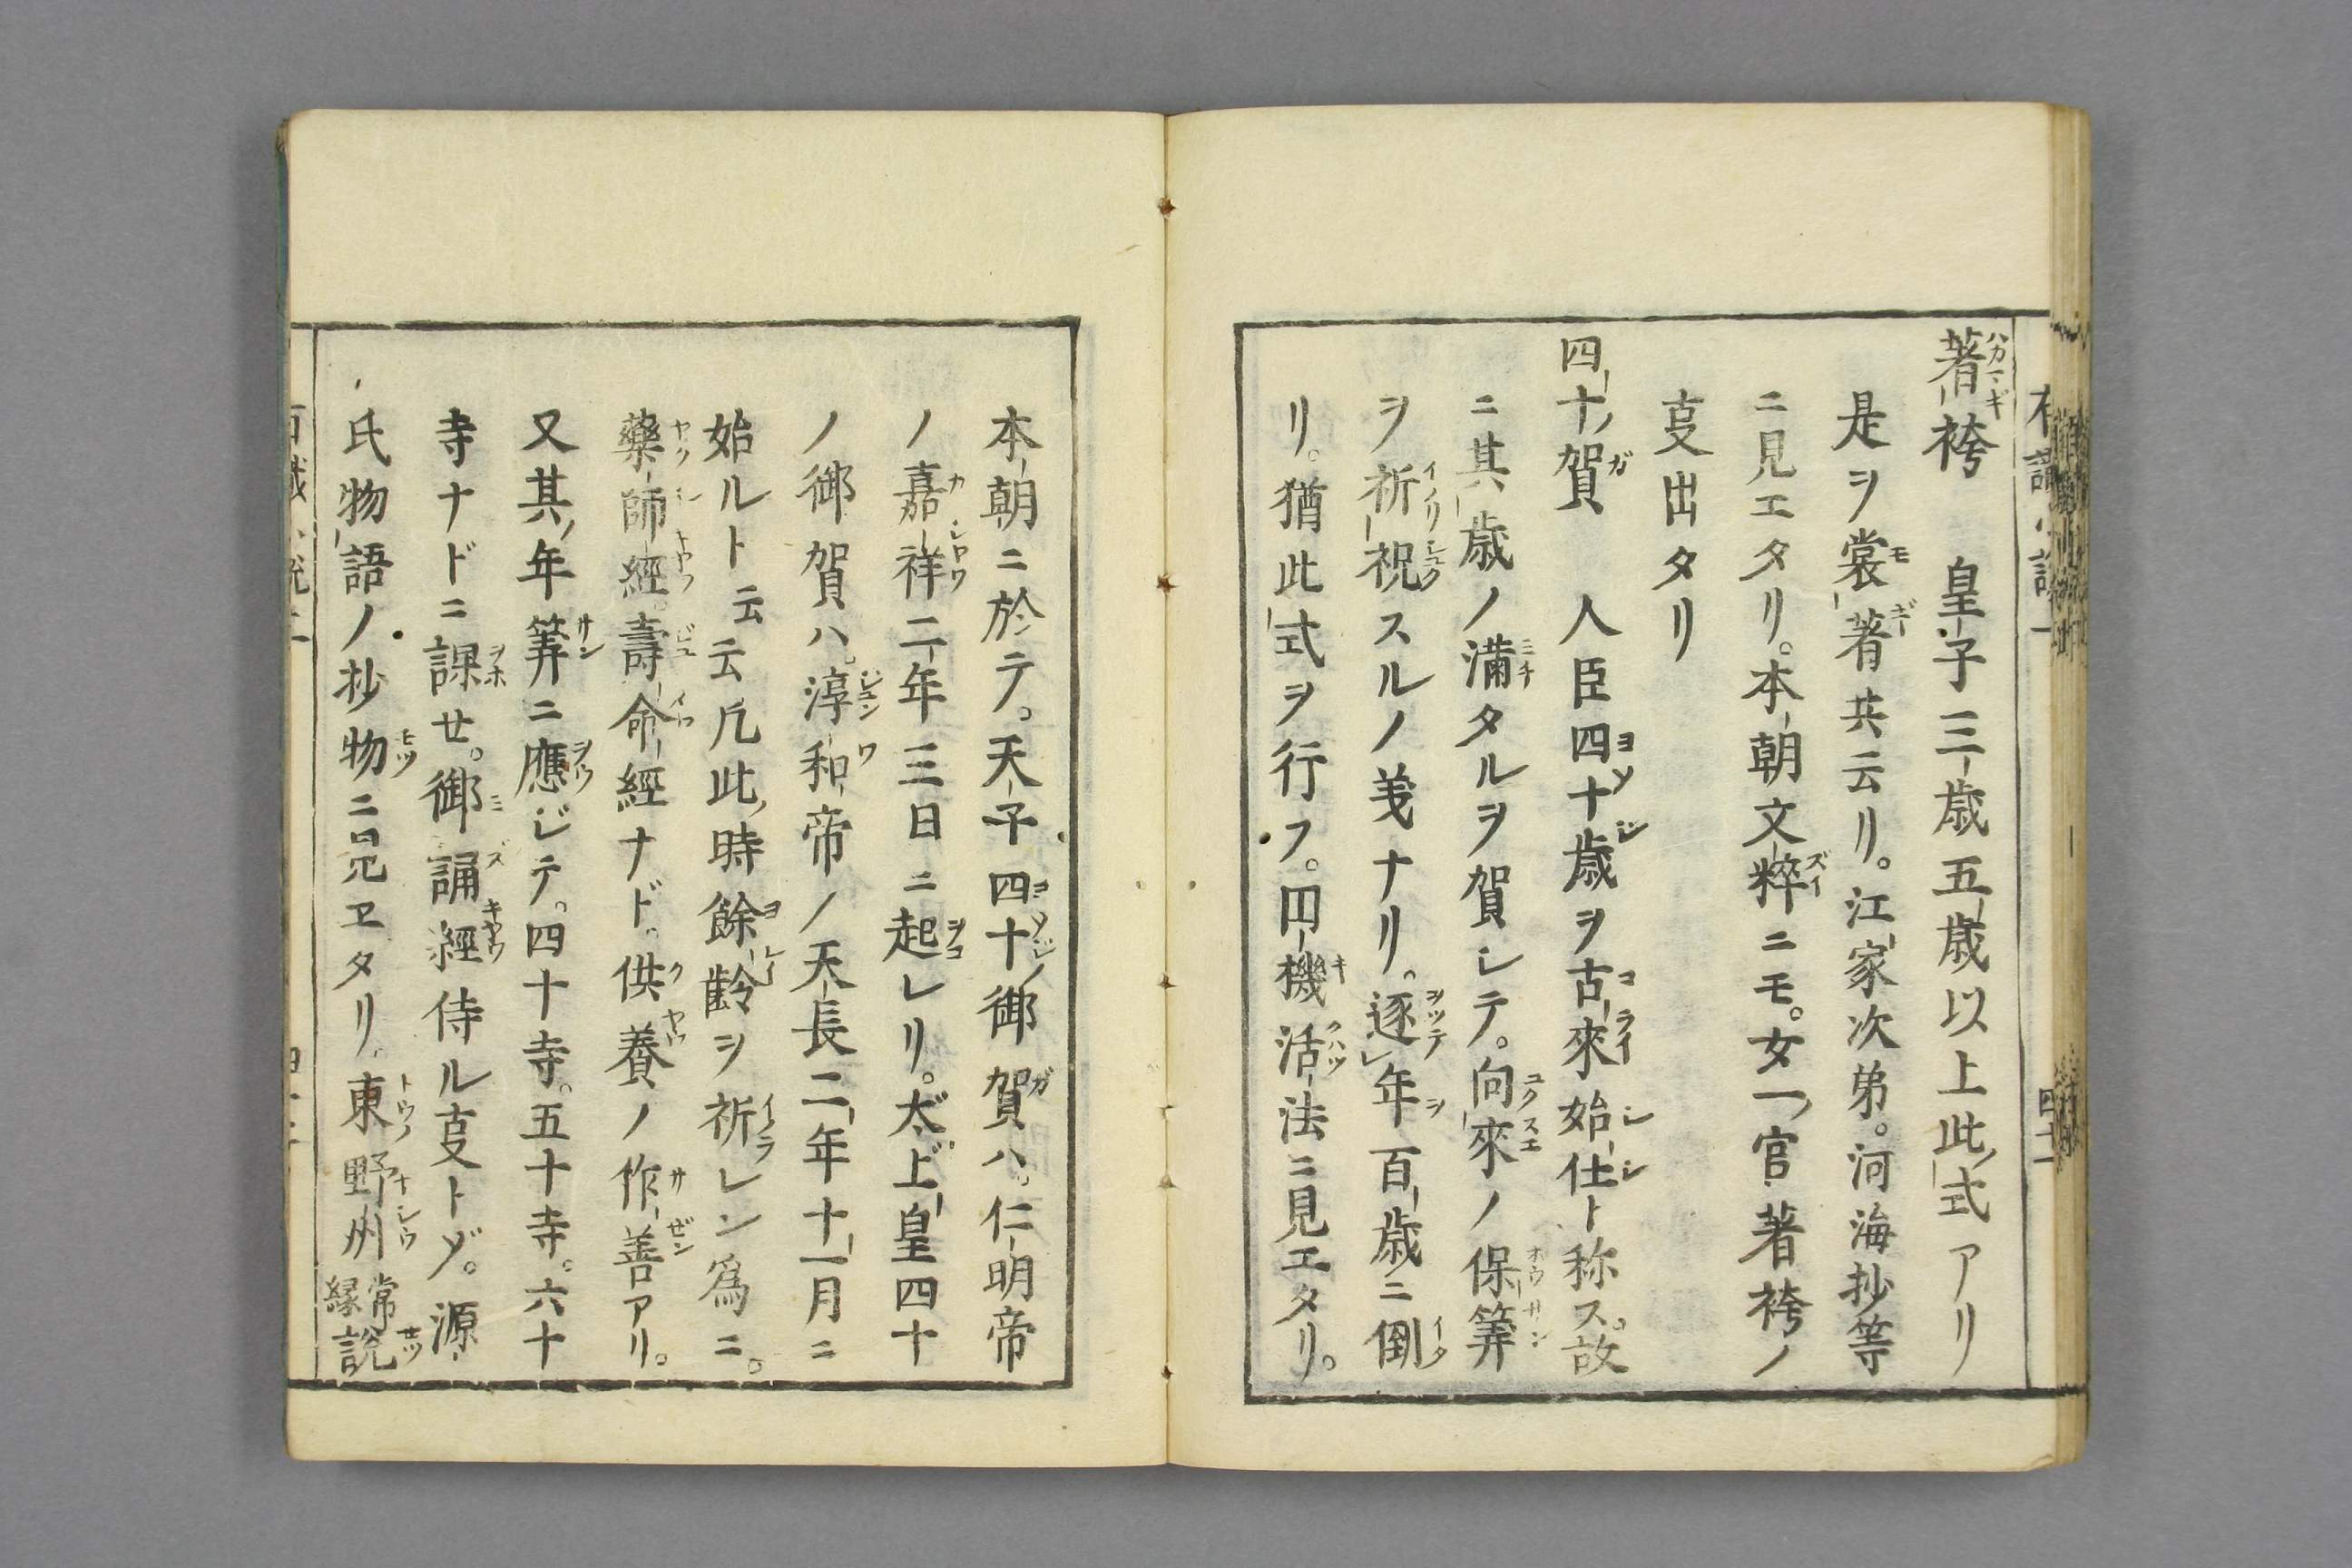 著袴　皇子三歳五歳以上此式アリ
是ヲ裳著共云リ。江家次弟。河海抄等
ニ見エタリ。本朝文粹ニモ。女一宮著袴ノ
叓出タリ
四十ノ賀　人臣四十歳ヲ古來始仕ト称ス。故
ニ其歳ノ満タルヲ賀シテ。向來ノ保筭
ヲ祈祝スルノ義ナリ。逐年百歳ニ倒
リ。猶此式ヲ行フ。円機活法ニ見エタリ。
本朝ニ於テ。天子四十ノ御賀ハ。仁明帝
ノ嘉祥二年三日ニ起レリ。太上皇四十
ノ御賀ハ。淳和帝ノ天長二年十一月ニ
始ルト云云凢此時餘齡ヲ祈レン為ニ。
藥師經。壽命經ナド。供養ノ作善アリ。
又其年筭ニ應ジテ。四十寺。五十寺。六十
寺ナドニ課セ。御誦經侍ル叓トゾ。源
氏物語ノ抄物ニ見ヱタリ。東野州常縁説